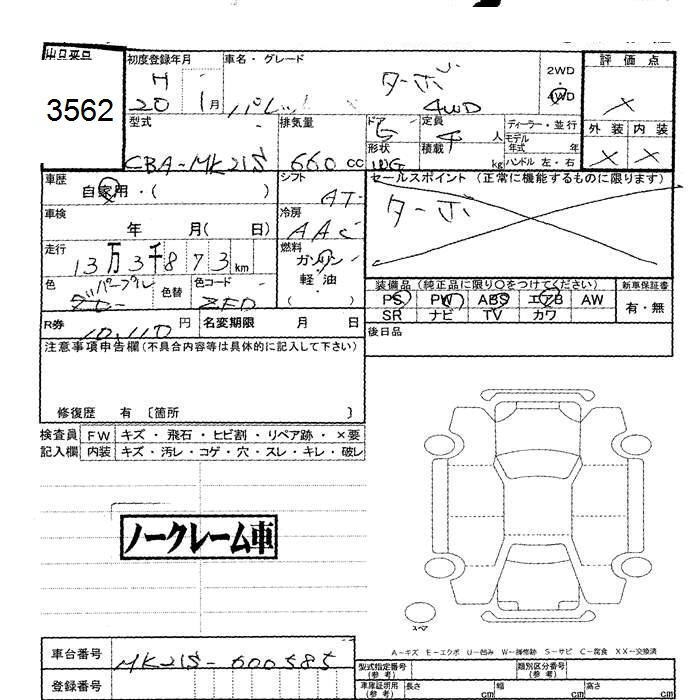 出品票
3562
初度登録年月
H
20 1月
車名・グレード
ターボ
パレット
4WD
2WD
4WD
評価点
×
外装 内装
× ×
型式
CBA-MK21S
排気量
660 cc
ドア
5
形状
定員
4 人
積載 kg
ディーラー・並行
モデル年式 年
ハンドル 左・右
車歴
自家用・( )
シフト
AT
セールスポイント (正常に機能するものに限ります)
ターボ
車検
年 月( 日)
冷房
AAC
走行
13万3千873 km
燃料
ガソリン
軽・油
( )
色
色替
色コード
ZFD
装備品 (純正品に限り○をつけてください)
PS PW ABS エアB AW
SR ナビ TV カワ
新車保証書
有・無
R券
10,110 円
名変期限 月 日
後日品
注意事項申告欄(不具合内容等は具体的に記入して下さい)
修復歴 有 〔箇所 〕
検査員 FW キズ・飛石・ヒビ割・リペア跡・×要
記入欄 内装 キズ・汚レ・コゲ・穴・スレ・キレ・破レ
ノークレーム車
スペア
A-キズ E-エクボ U-凹み W-補修跡 S-サビ C-腐食 XX-交換済
車台番号
MK21S-600585
登録番号
型式指定番号(参考)
類別区分番号(参考)
車庫証明用(参考) 長さ cm 幅 cm 高さ cm